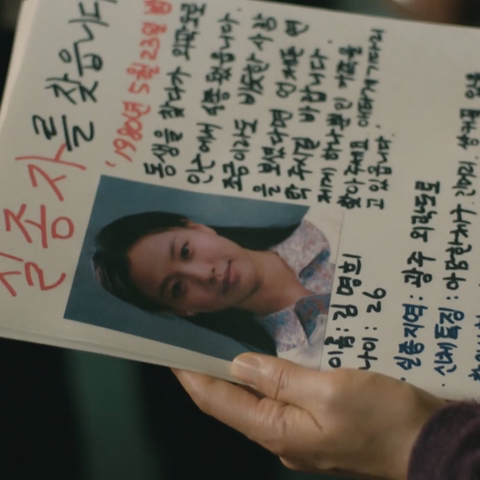 실종자를 찾습니다
'1980년 5월 23일 밤
동생을 찾다가 외곽도로
인근에서 실종됐습니다.
조금이라도 비슷한 사람
을 보셨다면 언제든 연
락 주시길 바랍니다.
제게 하나뿐인 가족을
찾아주세요 애타게 기다리
고 있습니다.
이름: 김명희
나이: 26
실종지역: 광주 외곽도로
신체특징: 아담한 체구